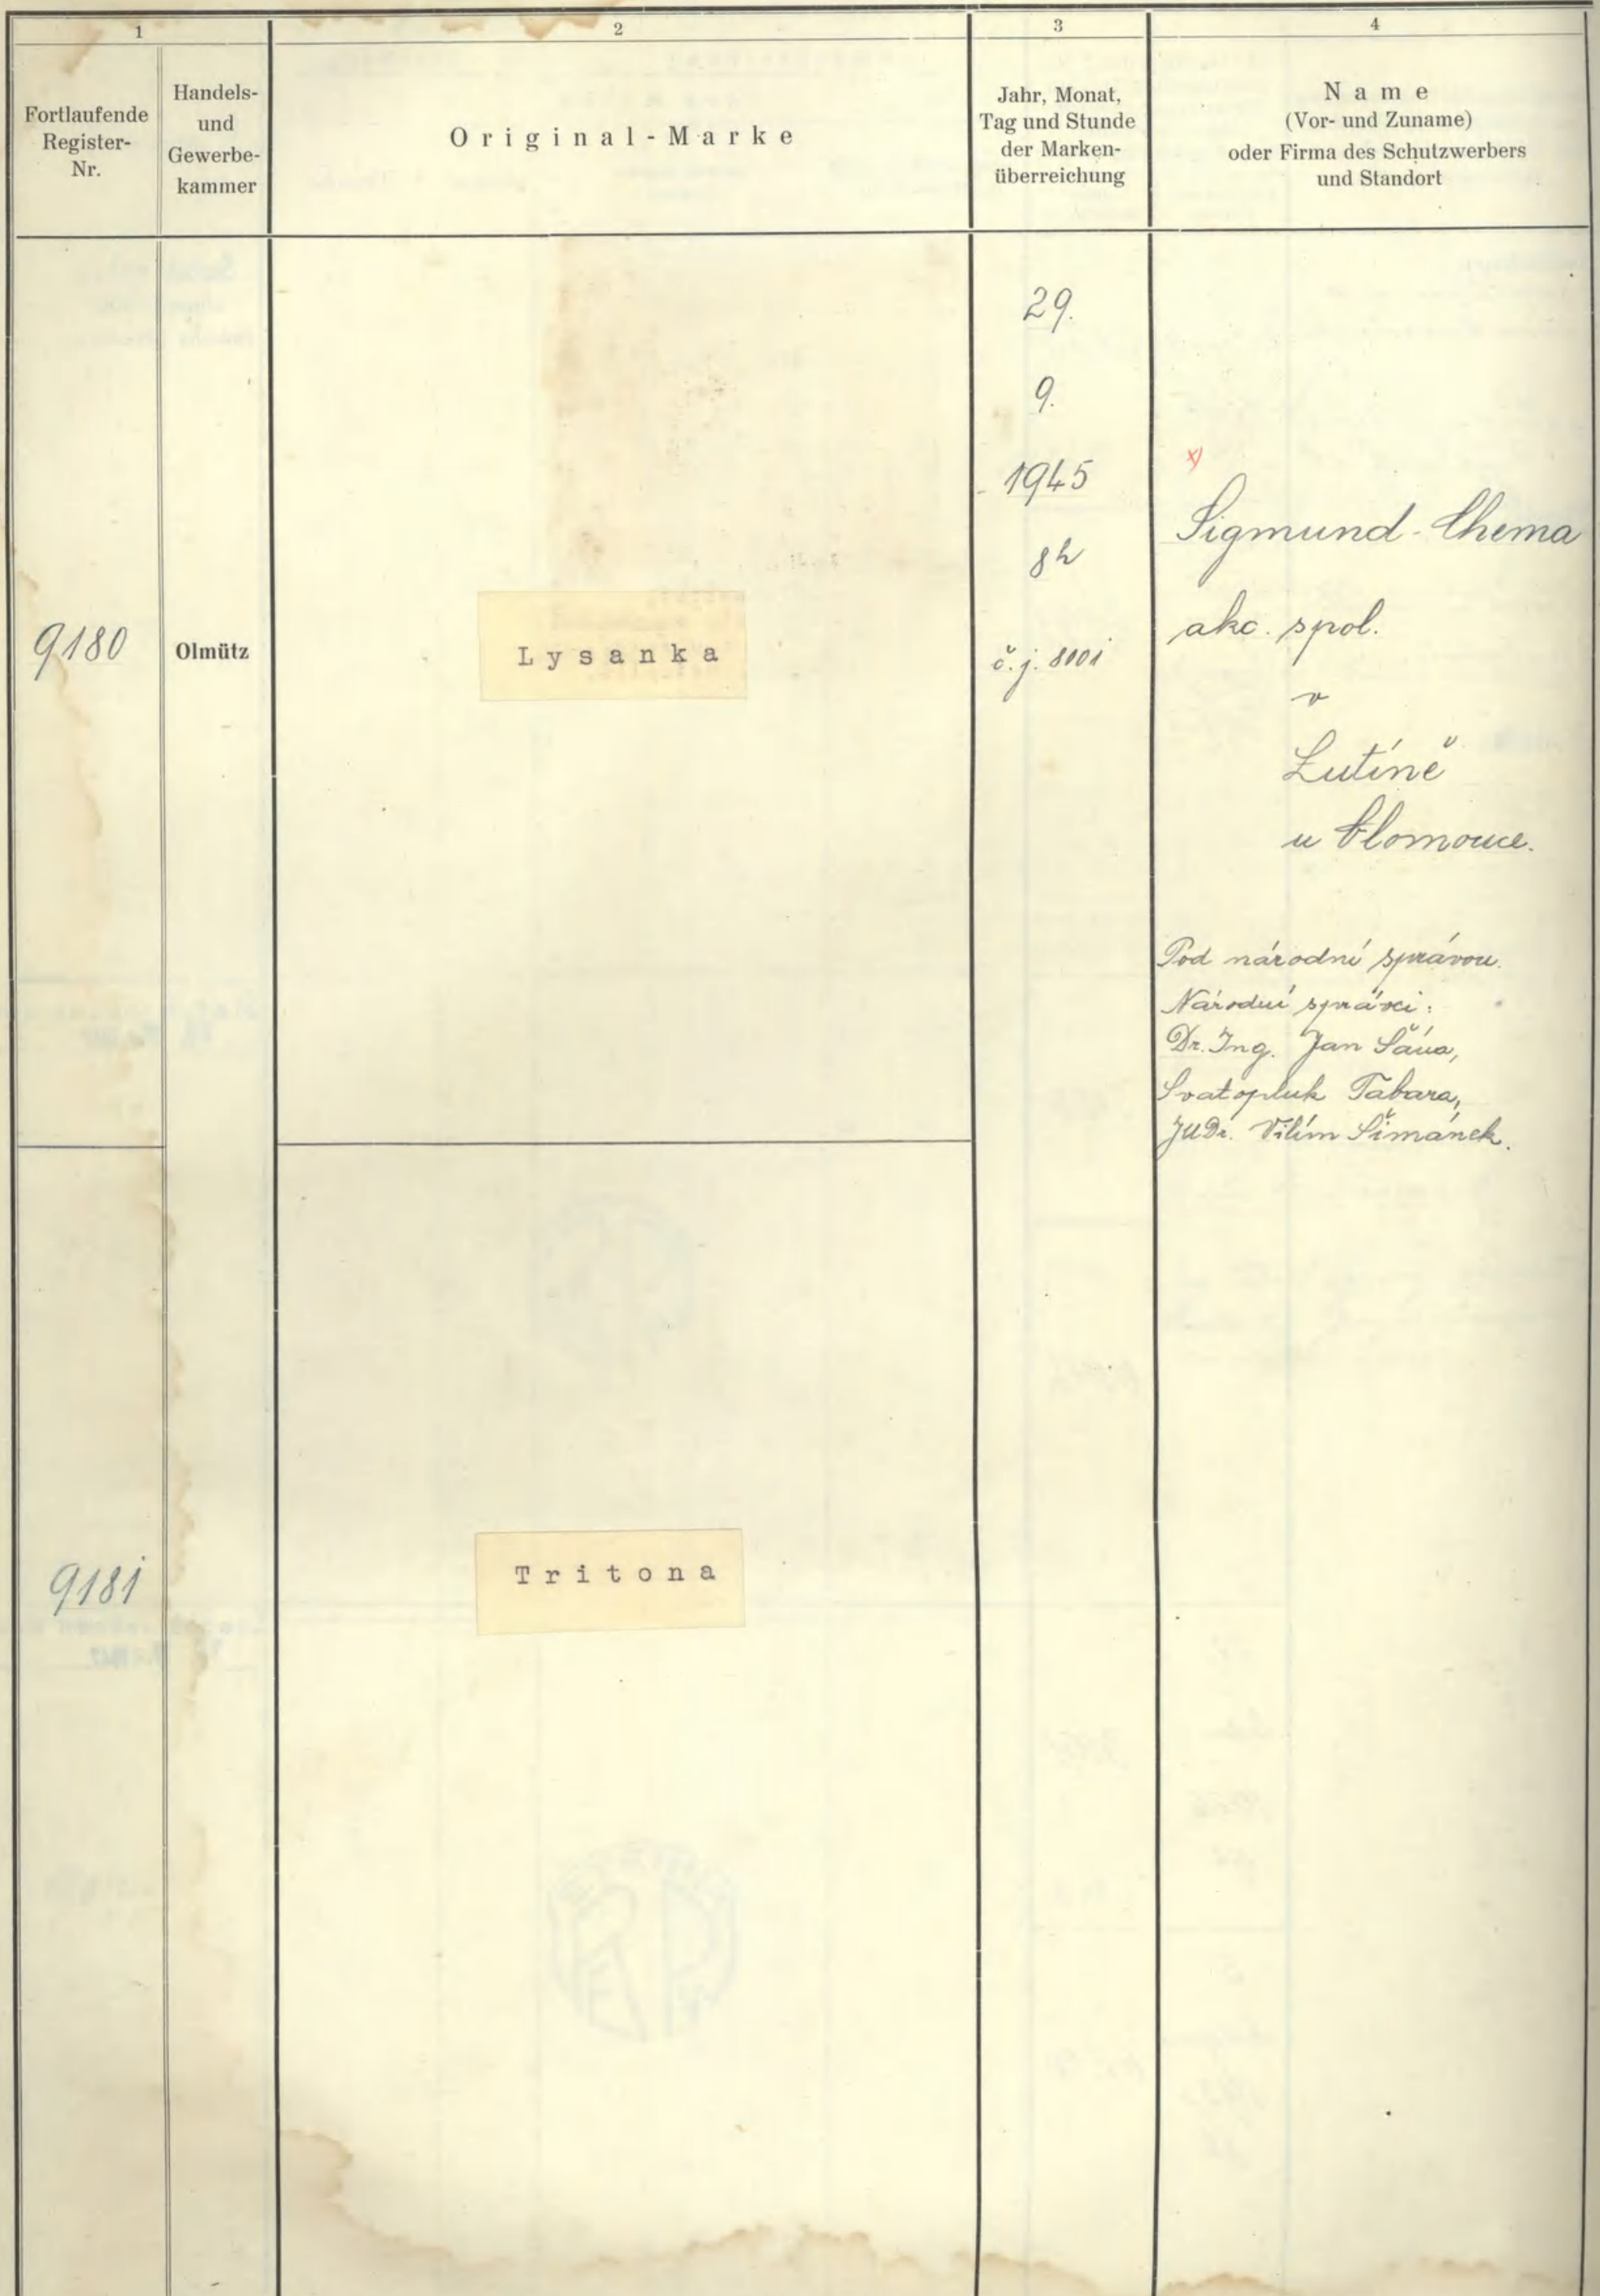 1
2
3
4
Fortlaufende
Register-
Nr.
Handels-
und
Gewerbe-
kammer
Original-Marke
Jahr, Monat,
Tag und Stunde
der Marken-
überreichung
Name
(Vor- und Zuname)
oder Firma des Schutzwerbers
und Standort
9180
Olmütz
Lysanka
29.
9.
1945
8h
č.j. 8001
x)
Sigmund-Chema
akc. spol.
v
Lutíně
u Olomouce.
Pod národní správou.
Národní správci:
Dr. Ing. Jan Šána,
Svatopluk Tabara,
JUDr. Vilím Šimánek.
9181
Tritona